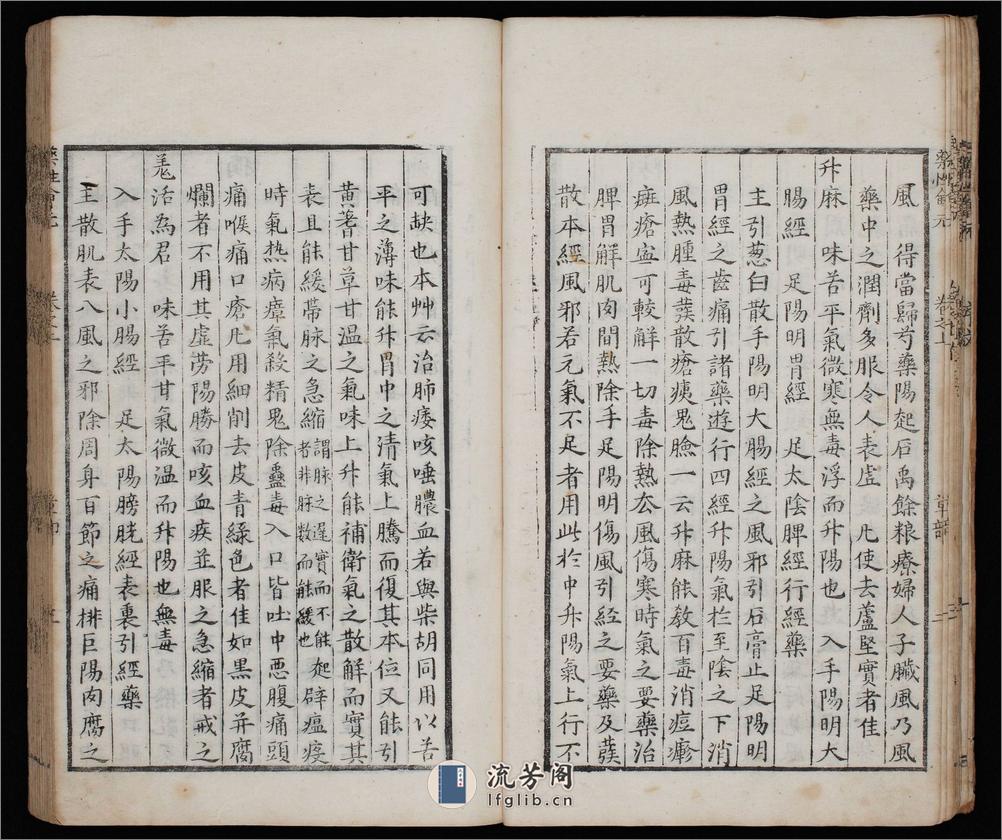 風　得當歸芍藥陽起石禹餘粮療婦人子臟風乃風
藥中之潤劑多服令人表虛　凡使去蘆堅實者佳
升麻　味苦平氣微寒無毒浮而升陽也　入手陽明大
腸經　足陽明胃經　足太陰脾經行經藥
主引葱白散手陽明大腸經之風邪引石膏止足陽明
胃經之齒痛引諸藥遊行四經升陽氣於至陰之下消
風熱腫毒發散瘡痍鬼臉一云升麻能救百毒消痘瘮
痲瘡盇可較解一切毒除熱太風傷寒時氣之要藥治
脾胃解肌肉間熱除手足陽明傷風引經之要藥及發
散本經風邪若元氣不足者用此於中升陽氣上行不
可缺也本艸云治肺痿咳唾膿血若與柴胡同用以苦
平之薄味能升胃中之清氣上騰而復其本位又能引
黃耆甘草甘溫之氣味上升能補衛氣之散解而實其
表且能緩帶脉之急縮謂脉之遲實而不能起者非脉數而能緩也辟瘟疫
時氣熱病瘴氣殺精鬼除蠱毒入口皆吐中惡腹痛頭
痛喉痛口瘡凡用細削去皮青綠色者佳如黑皮并腐
爛者不用其虛勞陽勝而咳血疾並服之急縮者戒之
羌活為君　味苦平甘氣微溫而升陽也無毒
入手太陽小腸經　足太陽膀胱經表裏引經藥
主散肌表八風之邪除周身百節之痛排巨陽肉腐之
藥性會元
卷之上
草部
流芳阁
lfglib.cn